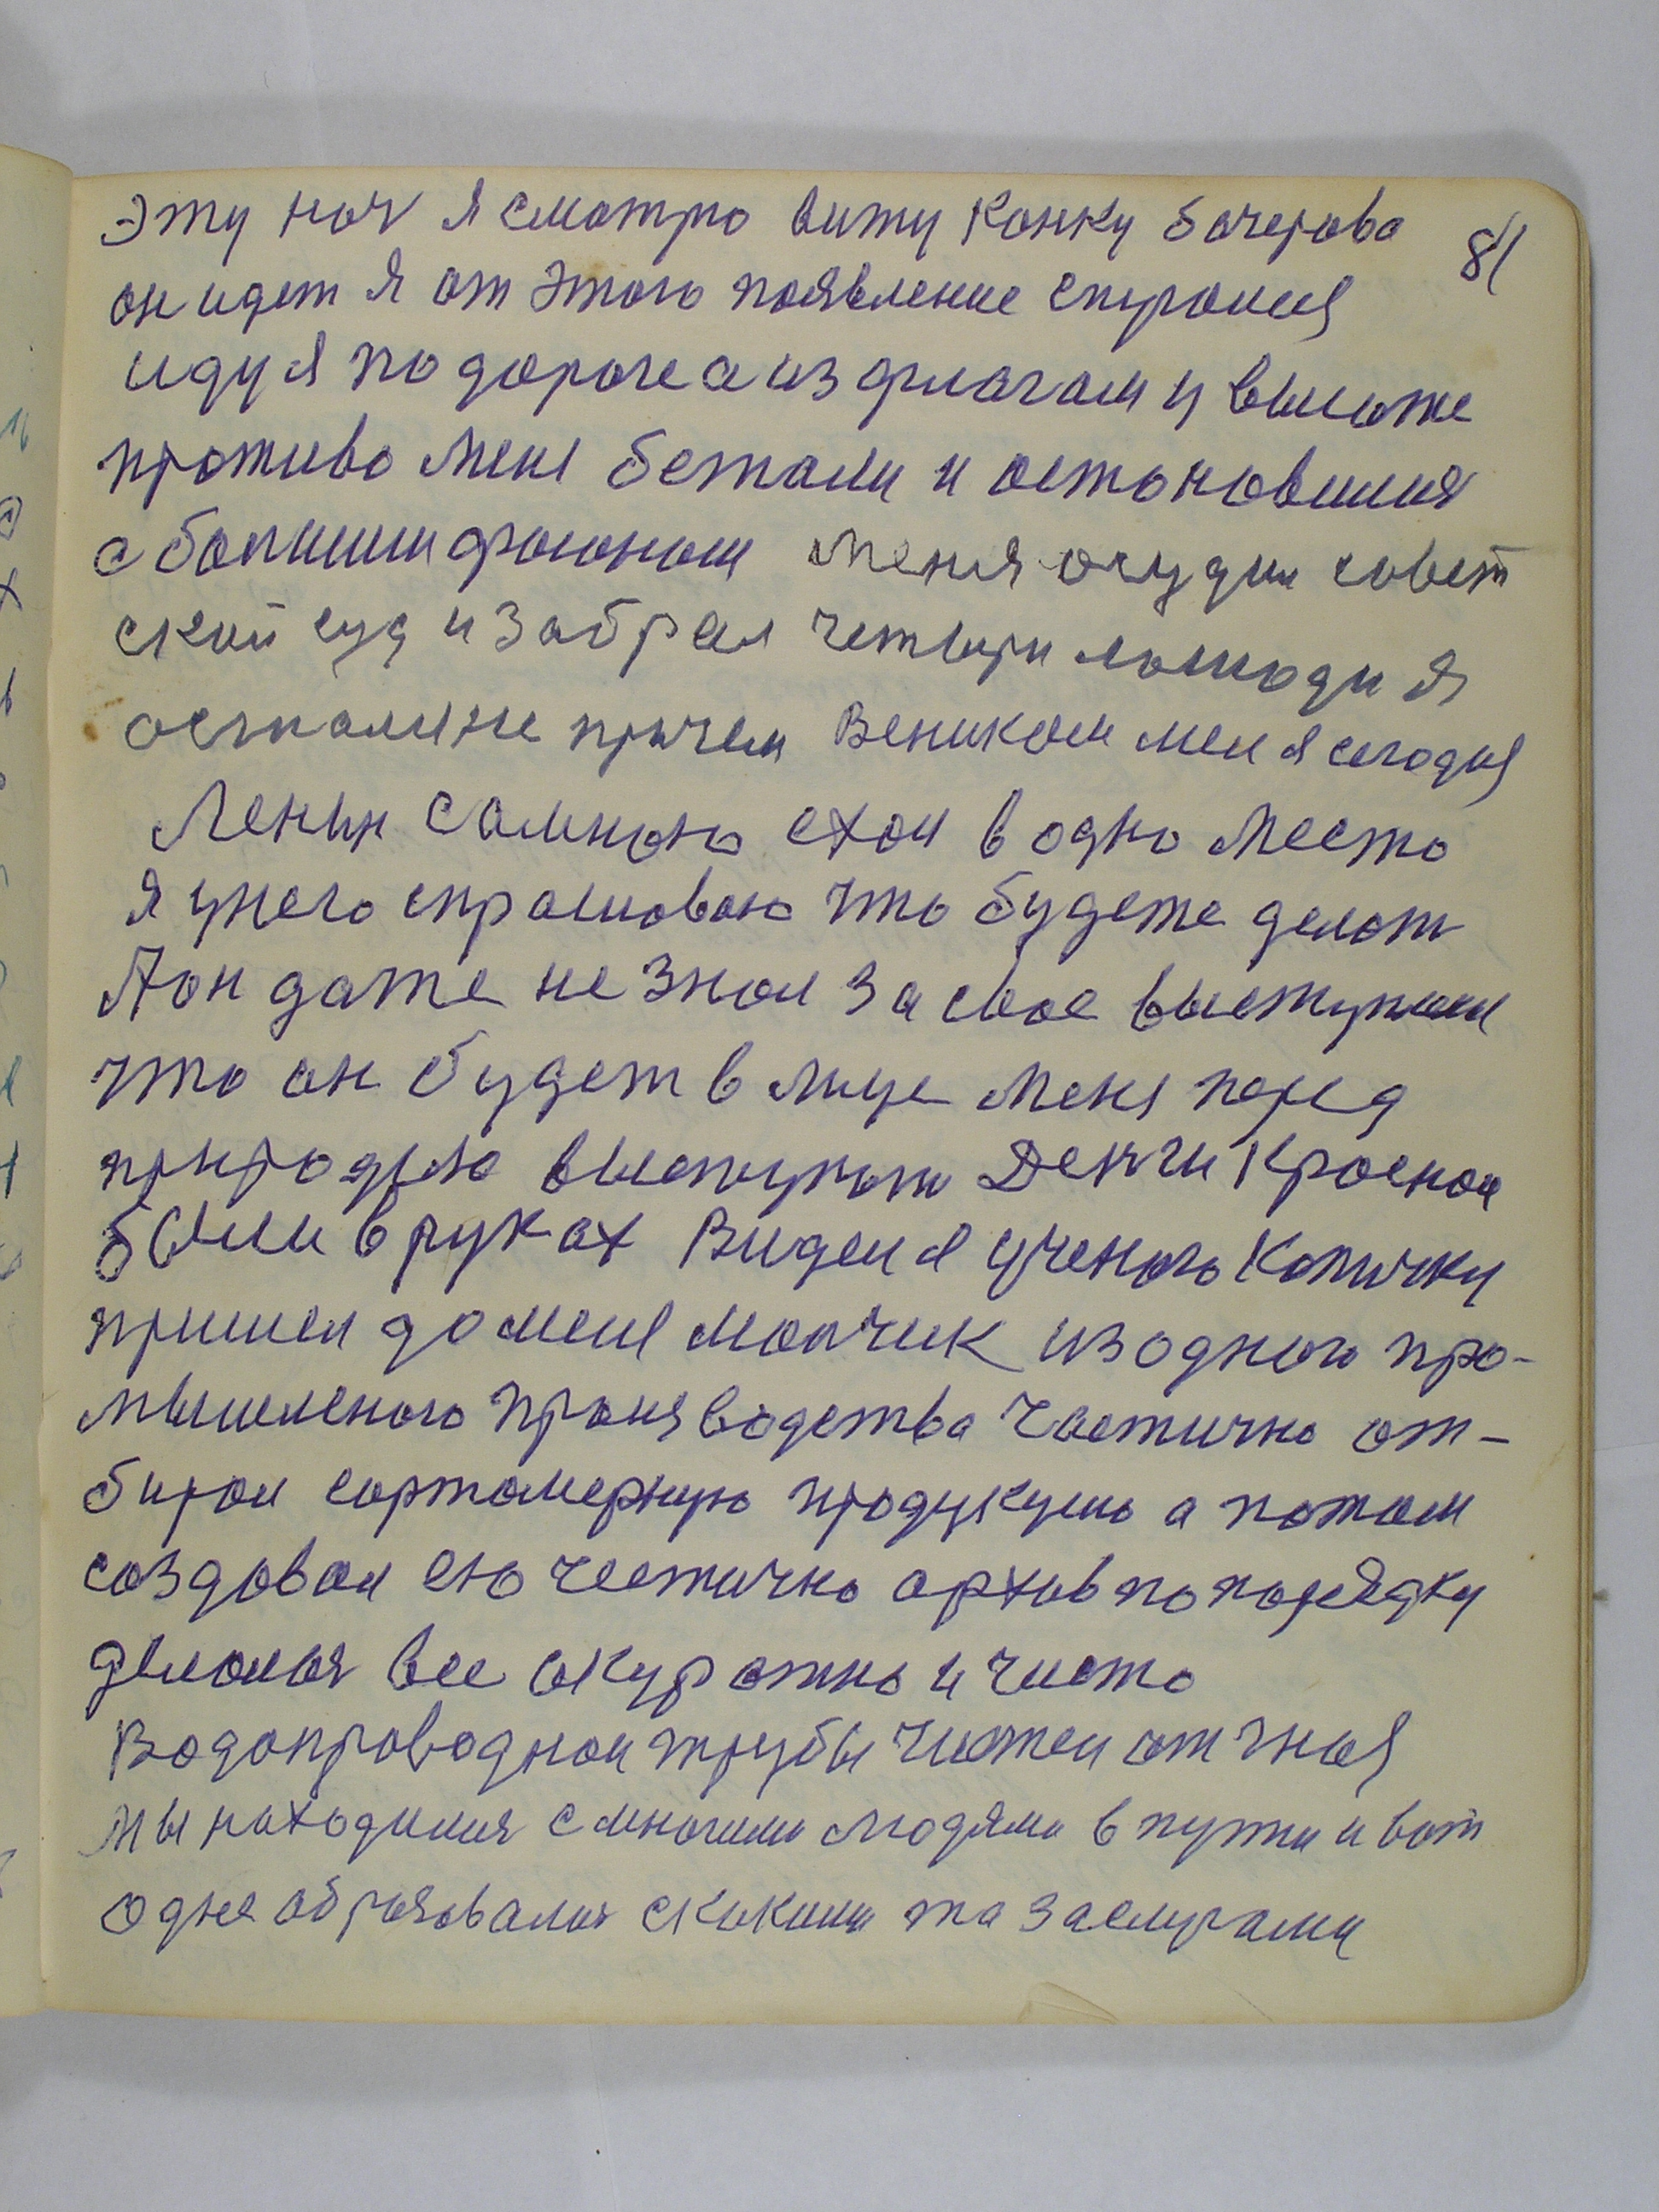 Эту ноч я смотрю вижу Конку бочерова
81
он идет я от этого появление спрошия
иду я по дороге а из флагам и высоже
противо мене бежали и остоновишия
с большим фоионом меня осудил совет
ской суд и забрал четыри лошоди я
осталия не причем Веником меня сегодня
Ленин самною ехол в одно место
я унего спрошоваю что будете делоть
А он даже не знол за свое выступлени
что он будет в лице мене перед
природою выступоть Денги Красной
были в руках Видел я ученого Копичку
пришел до мене молчик из одного про-
мышленого производства частично от-
бирол сортомерную продукцию а потом
создовол ею чеcтично орхив по порядку
делолоя все окуротно и чисто
Водопроводнои трубы чистеи от гноя
мы находилия с многими людями в пути и вот
одне оброзовалия скикими то засмрами